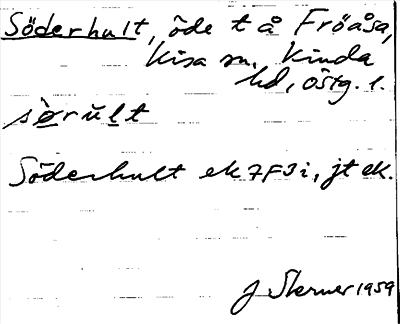 Söderhult, öde t å Fröåsa,
Kisa sn., Kinda
hd, Östg. l.
sò̀rŭlt
Söderhult ek 7F3i, jt ek.
J Sterner 1959